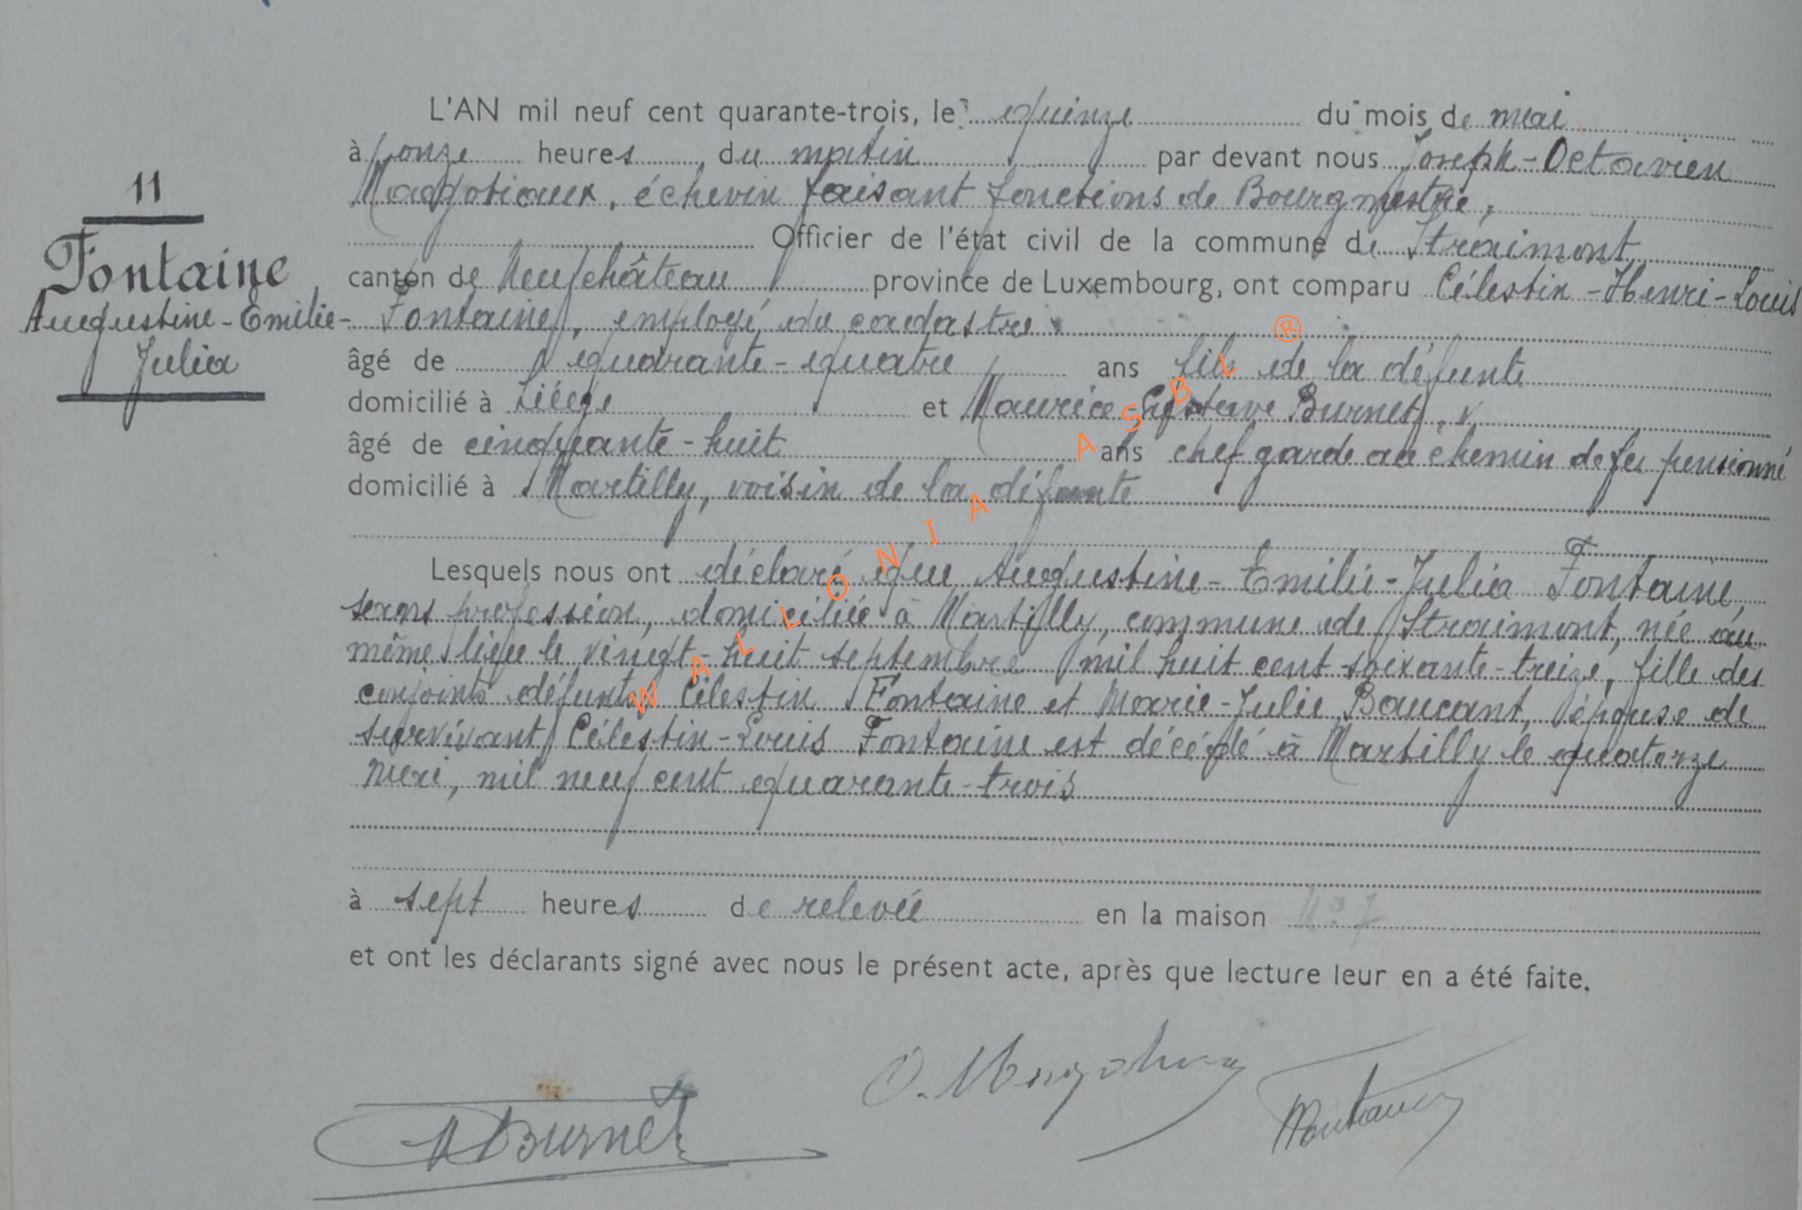 L'AN mil neuf cent quarante-trois, le quinze du mois de mai
à onze heures du matin par devant nous Joseph-Octavien
Magotiaux, échevin faisant fonctions de Bourgmestre,
11
Officier de l'état civil de la commune de Straimont
Fontaine
Augustine-Emilie-
Julia
canton de Neufchâteau province de Luxembourg, ont comparu Célestin-Henri-Louis
Fontaine, employé du cadastre
âgé de quarante-quatre ans fils de la défunte
domicilié à Liége et Maurice-Gustave Burnet,
âgé de cinquante-huit ans chef garde au chemin de fer pensionné
domicilié à Martilly, voisin de la défunte
WALLONIA ASBL ®
Lesquels nous ont déclaré que Augustine-Emilie-Julia Fontaine,
sans profession, domiciliée à Martilly, commune de Straimont, née au
même lieu le vingt-huit septembre mil huit cent soixante-treize, fille des
conjoints défunts Célestin Fontaine et Marie-Julie Baucant, épouse de
survivant Célestin-Louis Fontaine est décédé à Martilly le quatorze
mai, mil neuf cent quarante-trois
à sept heures de relevée en la maison N° 7
et ont les déclarants signé avec nous le présent acte, après que lecture leur en a été faite.
Burnet